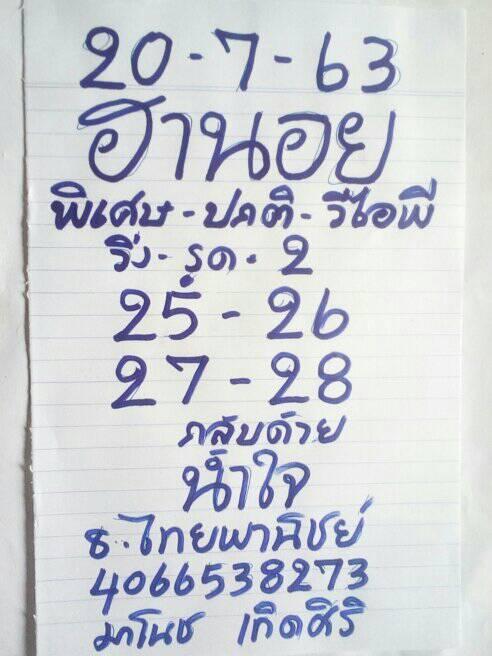 20-7-63
ฮานอย
พิเศษ-ปกติ-วีไอพี
วิ่ง-รูด-2
25-26
27-28
กลับด้วย
น้ำใจ
ธ.ไทยพานิชย์
4066538273
มาโนช เกิดศิริ